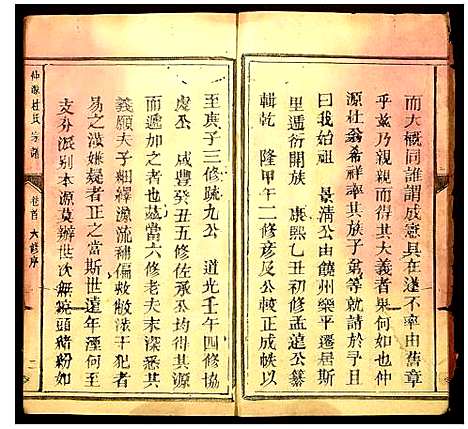 而大概同誰謂成憲具在遂不率由舊章
乎茲乃親親而得其大義者果何如也仲
源杜翁希祥率其族子弟等就請於予且
曰我始祖 景清公由饒州樂平遷居斯
里遞衍開族 康熙乙丑初修孟遠公纂
輯乾 隆甲午二修彥及公校正成帙以
至庚子三修疏九公 道光壬午四修協
處公 咸豐癸丑五修佐承公均得其源
而遞加之茲當六修老夫子末深悉其
義願夫子細繹源流補偏救敝泼干犯者
易之涉嫌疑者正之當斯世遠年湮何至
支分派別本源莫辦世次無繞頭緒粉如
仲源杜氏宗譜
卷首 六修序
二